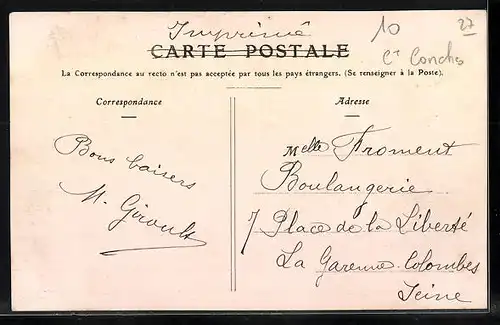 Imprimé
10
27
CARTE POSTALE
Ct Conches
La Correspondance au recto n'est pas acceptée par tous les pays étrangers. (Se renseigner à la Poste).
Correspondance
Bons baisers
M. Girault
Adresse
Melle Froment
Boulangerie
7 Place de la Liberté
La Garenne Colombes
Seine